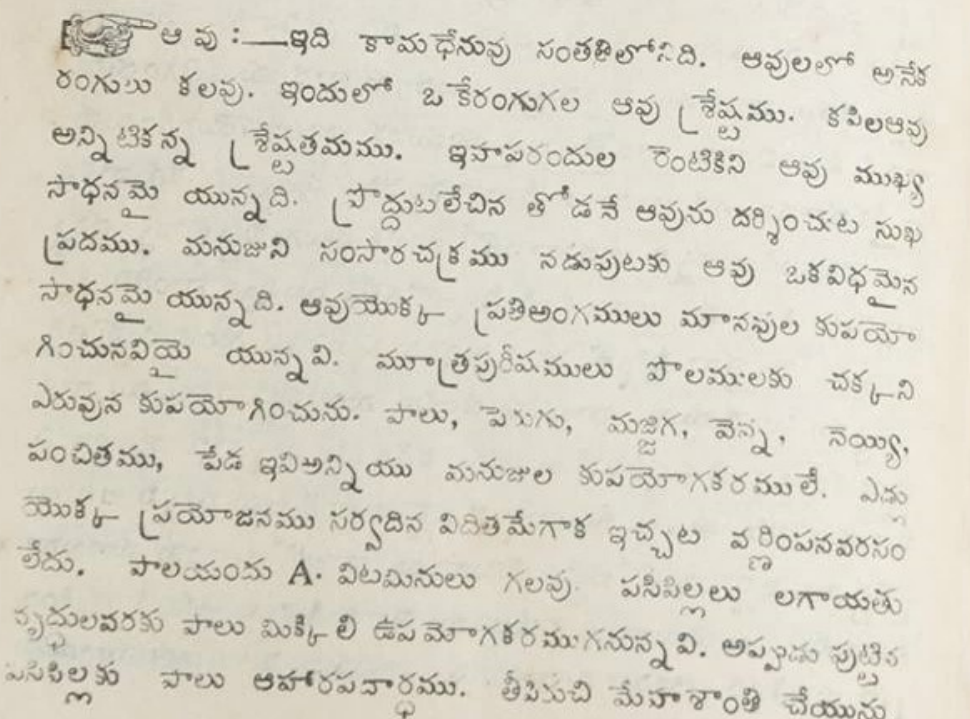 ఆ వు :—ఇది కామధేనువు సంతతిలోనిది. ఆవులలో అనేక
రంగులు కలవు. ఇందులో ఒకేరంగుగల ఆవు శ్రేష్టము. కపిలఆవు
అన్నిటికన్న శ్రేష్టతమము. ఇహపరందుల రెంటికిని ఆవు ముఖ్య
సాధనమై యున్నది. ప్రొద్దుటలేచిన తోడనే ఆవును దర్శించుట సుఖ
ప్రదము. మనుజుని సంసారచక్రము నడుపుటకు ఆవు ఒకవిధమైన
సాధనమై యున్నది. ఆవుయొక్క ప్రతిఅంగములు మానవుల కుపయో
గించునవియై యున్నవి. మూత్రపురీషములు పొలములకు చక్కని
ఎరువున కుపయోగించును. పాలు, పెరుగు, మజ్జిగ, వెన్న, నెయ్యి,
పంచితము, పేడ ఇవిఅన్నియు మనుజుల కుపయోగకరములే. ఎద్దు
యొక్క ప్రయోజనము సర్వదిన విదితమేగాక ఇచ్చట వర్ణింపనవరసం
లేదు. పాలయందు A. విటమినులు గలవు. పసిపిల్లలు లగాయతు
వృద్ధులవరకు పాలు మిక్కిలి ఉపయోగకరముగనున్నవి. అప్పుడు పుట్టిన
పసిపిల్లకు పాలు ఆహారపదార్థము. తీపిరుచి మేహశాంతి చేయును